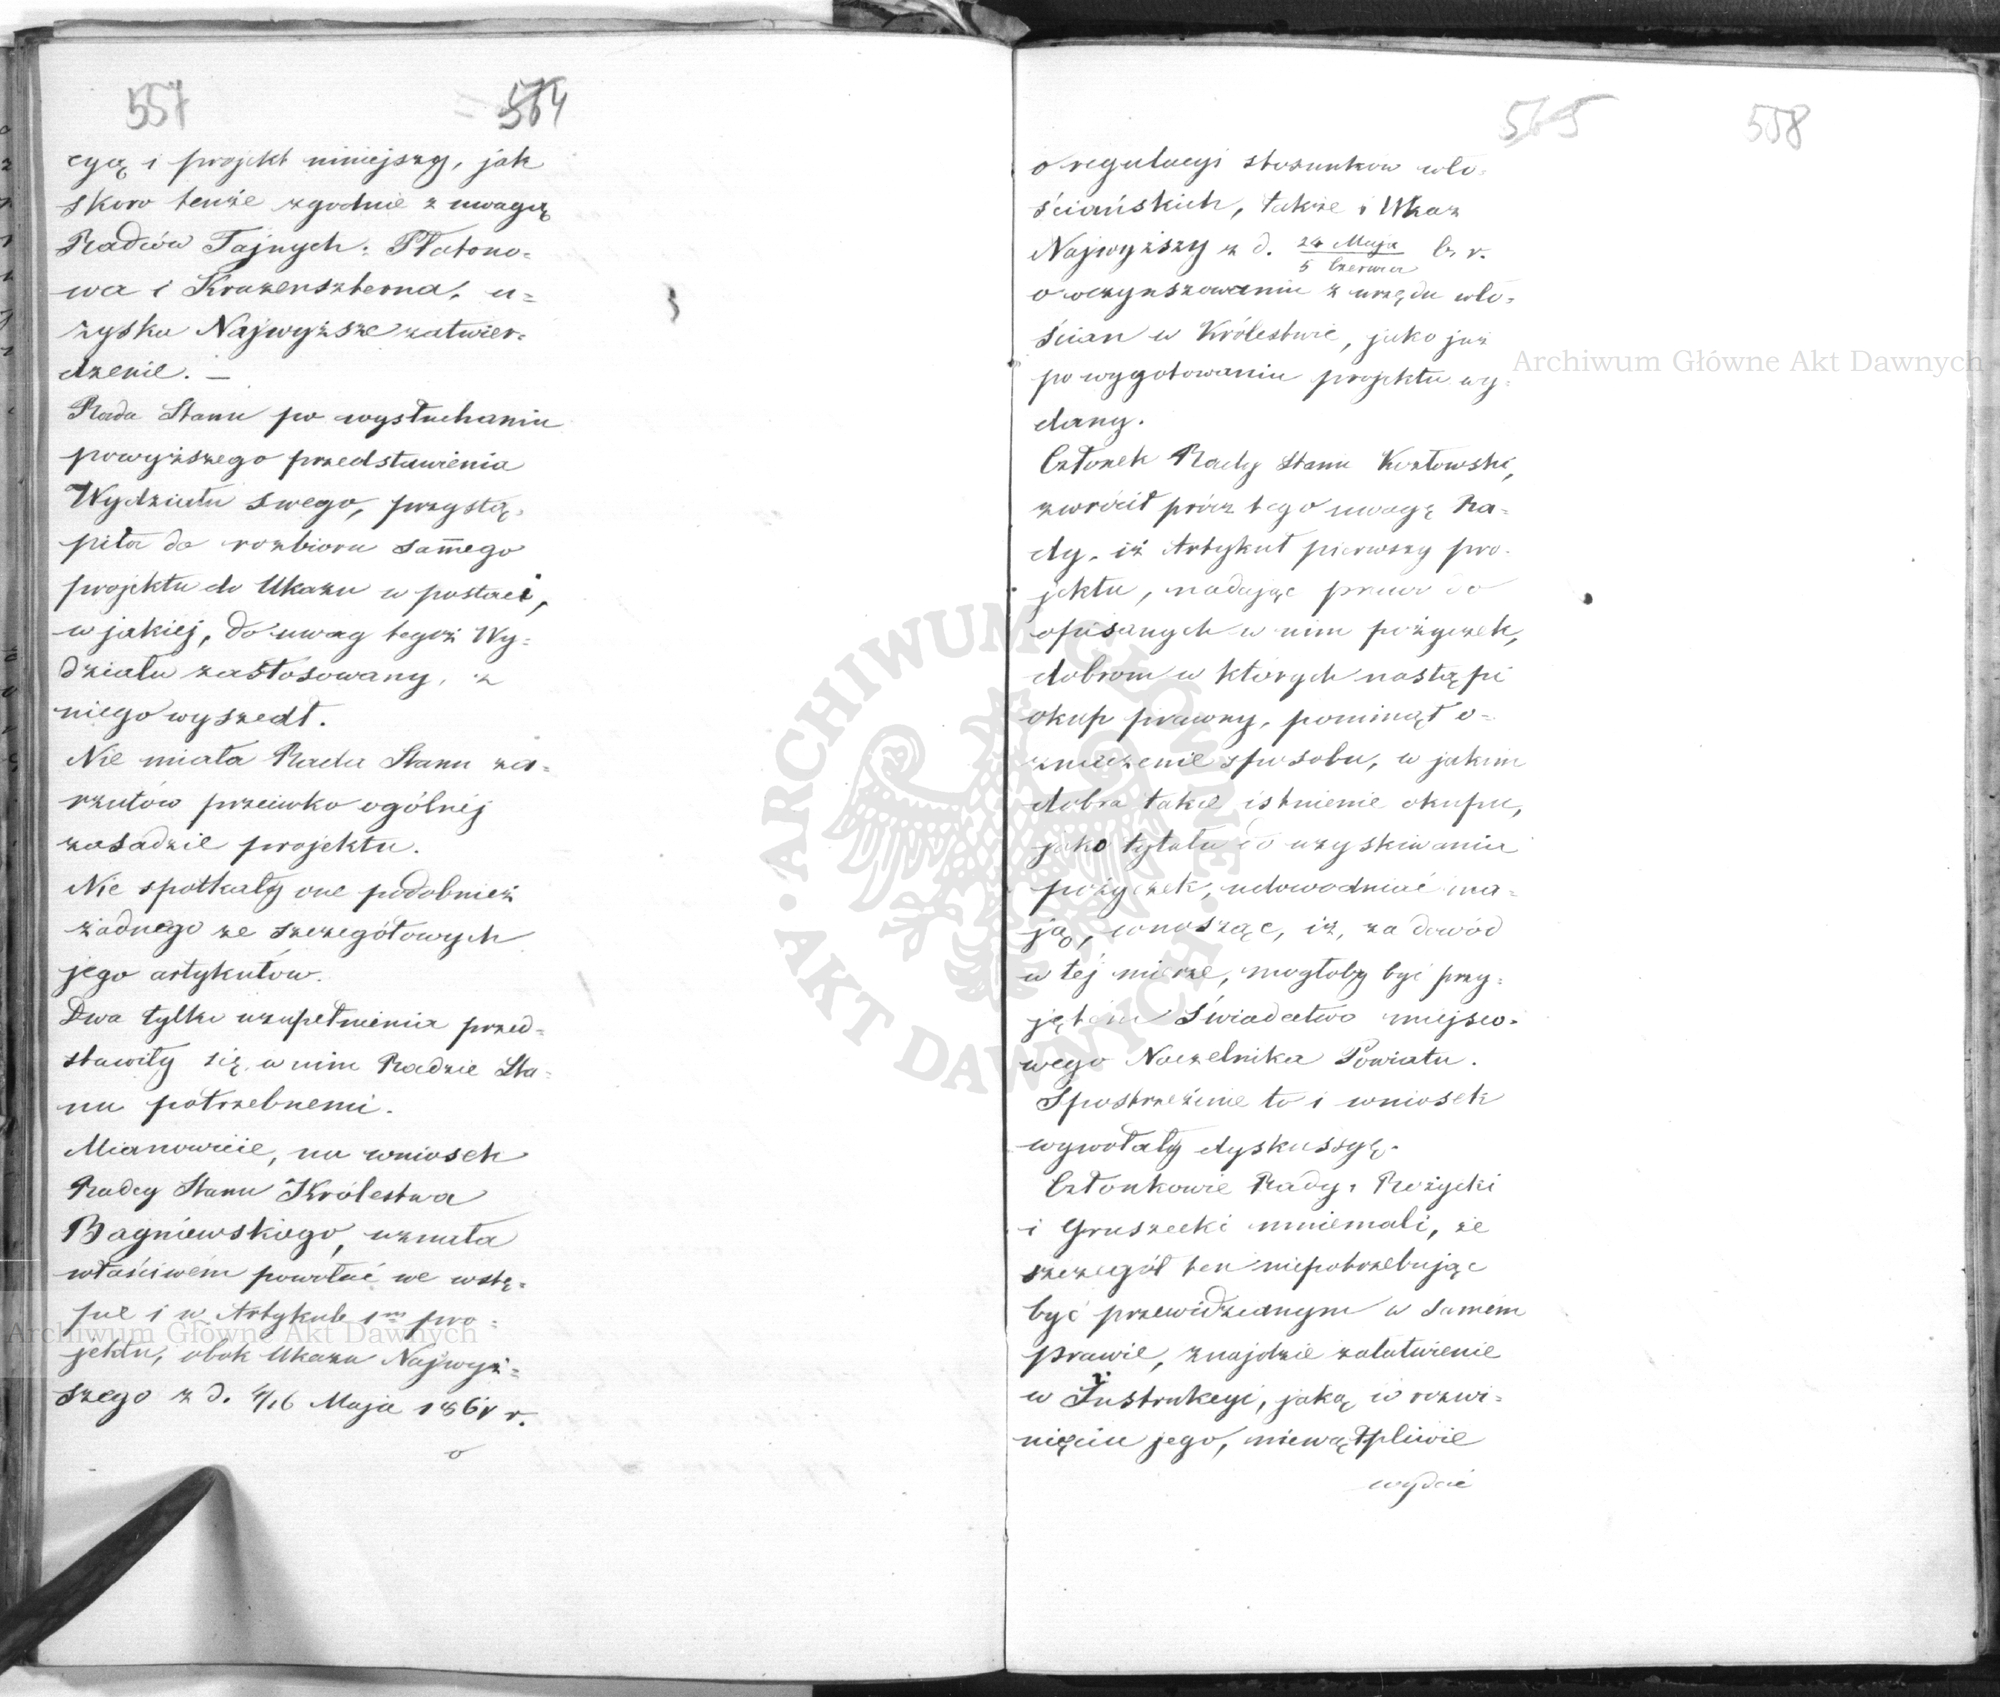 557
564
cyą i projekt niniejszy, jak
skoro tenże zgodnie z uwagą
Radców Tajnych: Płatono=
wa i Kruzenszterna, u=
zyska Najwyższe zatwier=
dzenie. —
Rada Stanu po wysłuchaniu
powyższego przedstawienia
Wydziału swego, przystą=
piła do rozbioru samego
projektu do Ukazu w postaci,
w jakiej, do uwag tegoż Wy=
działu zastosowany, z
niego wyszedł.
Nie miała Rada Stanu za=
rzutów przeciwko ogólnéj
zasadzie projektu.
Nie spotkały one podobnież
żadnego ze szczegółowych
jego artykułów.
Dwa tylko uzupełnienia przed=
stawiły się w nim Radzie Sta=
nu potrzebnemi.
Mianowicie, na wniosek
Radcy Stanu Królestwa
Bagniewskiego, uznała
właściwém powołać we wstę=
pie i w Artykule 1m pro=
jektu, obok Ukazu Najwyż=
szego z d. 4/16 Maja 1861 r.
o
565
558
o regulacyi stosunków wło=
ściańskich, także i Ukaz
Najwyższy z d. 24 Maja / 5 Czerwca b. r.
o oczynszowaniu z urzędu wło=
ścian w Królestwie, jako już
po wygotowaniu projektu wy=
dany.
Członek Rady Stanu Kozłowski,
zwrócił prócz tego uwagę Ra=
dy, iż Artykuł pierwszy pro=
jektu, nadając prawo do
opisanych w nim pożyczek,
dobrom w których nastąpi
okup prawny, pominął o=
znaczenie sposobu, w jakim
dobra takie istnienie okupu,
jako tytułu do uzyskiwania
pożyczek, udowodniać ma=
ją, wnosząc, iż, za dowód
w téj mierze, mogłoby być przy=
jętém świadectwo miejsco=
wego Naczelnika Powiatu.
Spostrzeżenie to i wniosek
wywołały dyskussyę.
Członkowie Rady: Rożycki
i Gruszecki mniemali, że
szczegół ten niepotrzebując
być przewidzianym w samém
prawie, znajdzie załatwienie
w Instrukcyi, jaką w rozwi=
nięciu jego, niewątpliwie
wydać
Archiwum Główne Akt Dawnych
Archiwum Główne Akt Dawnych
ARCHIWUM GŁÓWNE AKT DAWNYCH